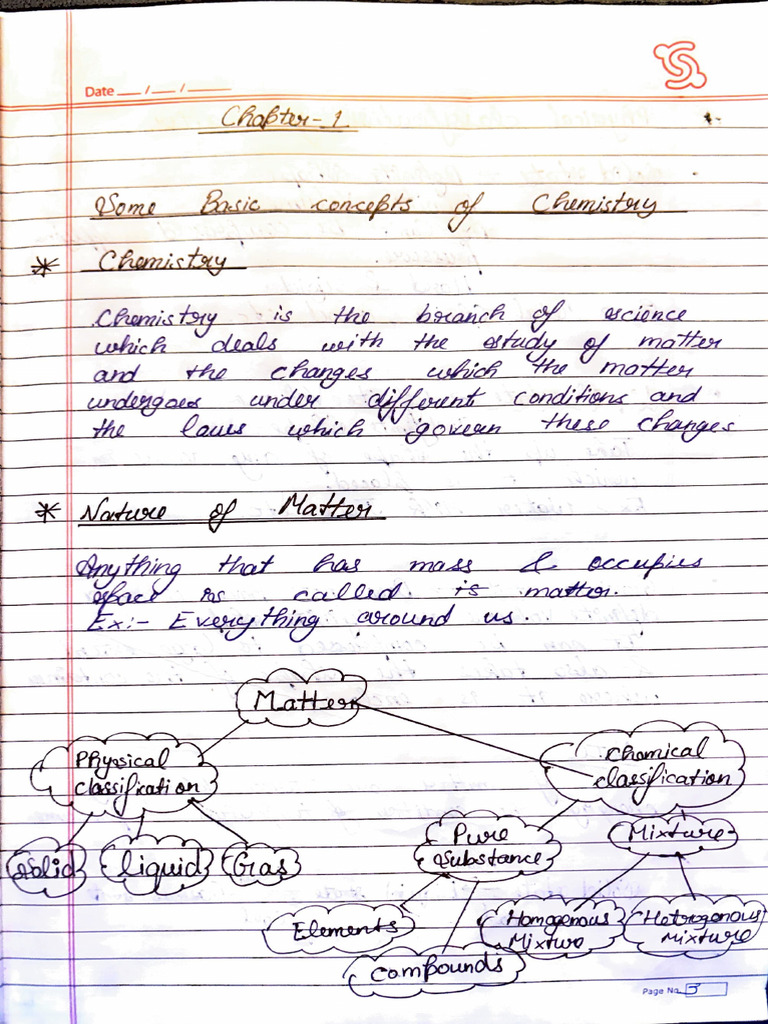 Date __/__/____
Chapter-1
Some Basic concepts of Chemistry
* Chemistry
Chemistry is the branch of science
which deals with the study of matter
and the changes which the matter
undergoes under different conditions and
the laws which govern these changes
* Nature of Matter
Anything that has mass & occupies
space is called is matter.
Ex:- Everything around us.
Matter
Physical
classification
Chemical
classification
Solid
liquid
Gas
Pure
Substance
Mixture
Elements
Compounds
Homogenous
Mixture
Hetrogonous
Mixture
Page No. 3